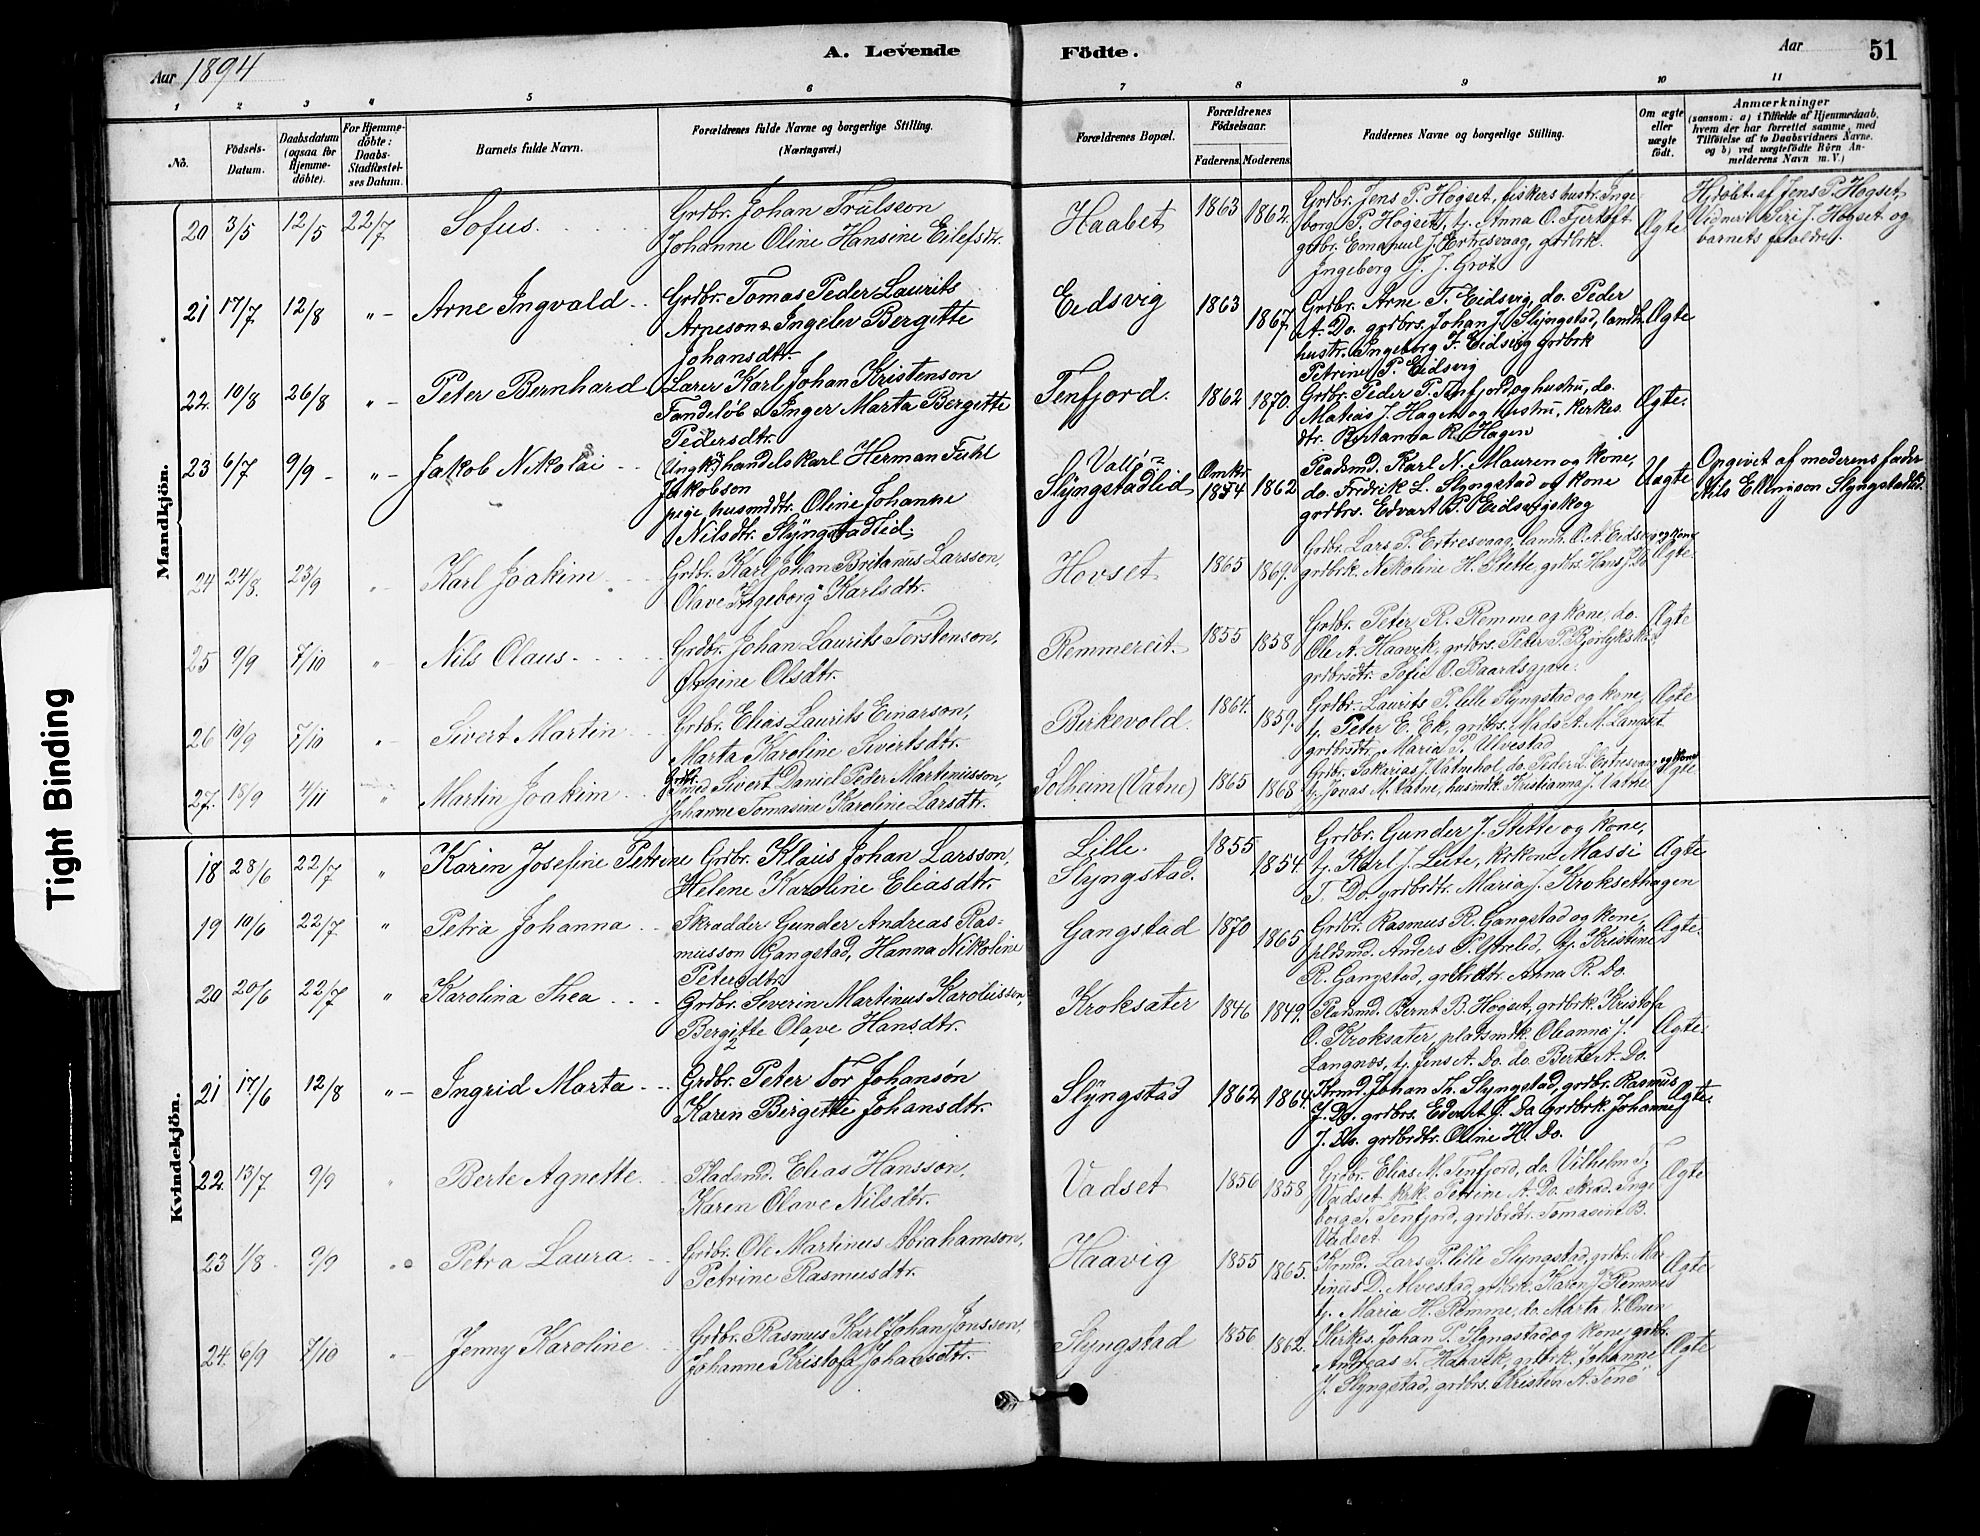 A. Levende Födte.
Aar 1894
Aar 51
1 2 3 4 5 6 7 8 9 10 11
No.
Födsels-Datum.
Daabsdatum (ogsaa for Hjemmedöbte).
For Hjemmedöbte: Daabs-Stadfæstelses Datum.
Barnets fulde Navn.
Forældrenes fulde Navne og borgerlige Stilling. (Næringsvei.)
Forældrenes Bopæl.
Forældrenes Födselsaar.
Faderens. Moderens.
Faddernes Navne og borgerlige Stilling.
Om ægte eller uægte födt.
Anmærkninger
(saasom: a) i Tilfælde af Hjemmedaab, hvem der har forrettet samme, med Tilföielse af to Daabsvidners Navne, og b) ved uægtefödte Börn Anmelderens Navn m. V.)
Mandkjön.
20 3/5 12/5 22/7 Sofus.
Grdbr. Johan Trulsson
Johanne Oline Hansine Eilefsdtr.
Haabet 1863 1862.
Grdbr. Jens P. Hogset, fiskers hustr. Inge
borg P. Hogset, tj. Anna O. Fjertoft
grbr. Emanuel J. Ertresvaag, grdbrk.
Ingeborg J. J. Grot
Ægte
Hjdöbt. af Jens P. Hogset,
Vidner: Siri J. Hogset og
barnets forældre.
21 17/7 12/8 "- Arne Ingvald
Grdbr. Tomas Peder Laurits
Arneson & Ingelev Bergitte
Johansdtr.
Eidsvig 1863 1867.
Grdbr. Arne T. Eidsvig, do. Peder
A. Do. grdbrs. Johan J. Slyngstad, landh.
hustr. Ingeborg T. Eidsvig grdbrk
Petrine P. Eidsvig
Ægte
22. 10/8 26/8 "- Peter Bernhard
Lærer Karl Johan Kristenson
Tandeløb & Inger Marta Bergitte
Pedersdtr.
Tenfjord. 1862 1870.
Grdbr. Peder P. Tenfjord og hustru, do.
Matias J. Hagen og hustru, kirkes.
dtr. Bertanna R. Hagen
Ægte.
23 6/7 9/9 - "- Jakob Nikolai
(Ungk.) handelskarl Herman Fuhl
Jakobson
pige, husmdtr. Oline Johanne
Nilsdtr. Slyngstadlid
Slyngstadlid Omkr. 1854 1862
Pladsmd. Karl N. Mauren og kone,
do. Fredrik L. Slyngstad og kone
grdbrs. Edvart P. Eidsvigskog
Uægte
Opgivet af moderens fader
Nils Ellingson Slyngstadlid.
24 24/8. 23/9 Karl Joakim
Grdbr. Karl Johan Britanus Larsson,
Olave Ingeborg Karlsdtr.
Hovset 1865 1869.
Grdbr. Lars P. Ertresvaag, landh. O. A. Eidsvig og kone
grdbrk. Nikoline H. Stette, grdbrs. Hans J. Do.
Ægte.
25 9/9 7/10 " Nils Olaus
Grdbr. Johan Laurits Torstenson,
Ørgine Olsdtr.
Remmereit 1855 1858
Grdbr. Peter R. Remme og kone, do.
Ole A. Haavik, grdbrs. Peter P.
grdbrsdtr. Sofie O. Baardsgjære.
Ægte
26 10/9 7/10 " Sivert Martin
Grdbr. Elias Laurits Einarson,
Marta Karoline Sivertsdtr.
Birkevold. 1864. 1859.
Grdbr. Laurits P. lille Slyngstad og kone,
tj. Peter E. Ek, grdbrs. Mads A. M. Langset
grdbrsdtr. Maria P. Ulvestad
Ægte
27. 18/9 4/11 " Martin Joakim
Grdbr. Sivert Daniel Peter Martinusson,
Johanne Tomasine Karoline Larsdtr.
Solheim (Vatne) 1865 1868
Grdbr. Sakarias J. Vatnehol, do. Peder L. Ertresvaag og kone
tj. Jonas M. Vatne, husmdk. Kristianna J. Vatne
Ægte
Kvindekjön.
18 28/6 22/7 " Karin Josefine Petrine
Grdbr. Klaus Johan Larsson,
Helene Karoline Eliasdtr.
Lille
Slyngstad. 1855 1854.
Grdbr. Gunder J. Stette og kone,
tj. Karl J. Leite, kirkone Massi
T. Do. grdbrdtr. Maria J. Kroksethagen
Ægte
19 10/6 22/7 " Petra Johanna
Skrædder Gunder Andreas Ras-
musson Gangstad, Hanna Nikoline
Petersdtr.
Gangstad 1870 1865
Grdbr. Rasmus R. Gangstad og kone,
pldsmd. Anders P. Ytrelid, tj. Kristine
R. Gangstad, grdbrdtr. Anna R. Do.
Ægte
20 20/6 22/7 " Karolina Thea
Grdbr. Severin Martinus Karolusson,
Bergitte Olave Hansdtr.
Kroksater 1846 1849.
Pladsmd. Bernt B. Hogset, grdbrk. Kristofa
O. Kroksater, pladsmdk. Oleanna J.
Langnæs, tj. Jens A. Do. do. Berte A. Do.
Ægte.
21 17/6 12/8 "- Ingrid Marta
Grdbr. Peter Tor Johanson
Karen Bergitte Johansdtr.
Slyngstad 1862 1864.
Johan Th. Slyngstad, grdbr. Rasmus
J. Do. grdbrs. Edvart J. Do. grdbrk. Johanne
J. Do. grdbrdtr. Oline H. Do.
Ægte.
22. 13/7 9/9 " Berte Agnette
Pladsmd. Elias Hansson,
Karen Olave Nilsdtr.
Vadset 1856 1858
Grdbr. Elias M. Tenfjord, do. Vilhelm T.
Vadset, krk. Petrine A. Do. skræd. Inge
borg T. Tenfjord, grdbrdtr. Tomasine B.
Vadset
Ægte
23 1/8 9/9 " Petra Laura
Grdbr. Ole Martinus Abrahamson,
Petrine Rasmusdtr.
Haavig 1855 1865.
Lars P. lille Slyngstad, grdbr. Mar-
tinus D. Alvestad, grdbrk. Karen J. Remme
tj. Maria H. Remme, do. Marta N. Onen
Ægte
24. 6/9 7/10 Jenny Karoline
Grdbr. Rasmus Karl Johan Jonsson,
Johanne Kristofa Johansdtr.
Slyngstad 1856 1862.
Kirkes. Johan P. Slyngstad og kone, grdbr.
Andreas T. Haavik, grdbrk. Johanne
J. Slyngstad, grdbrs. Kristen A. Tenø
Ægte
Tight Binding